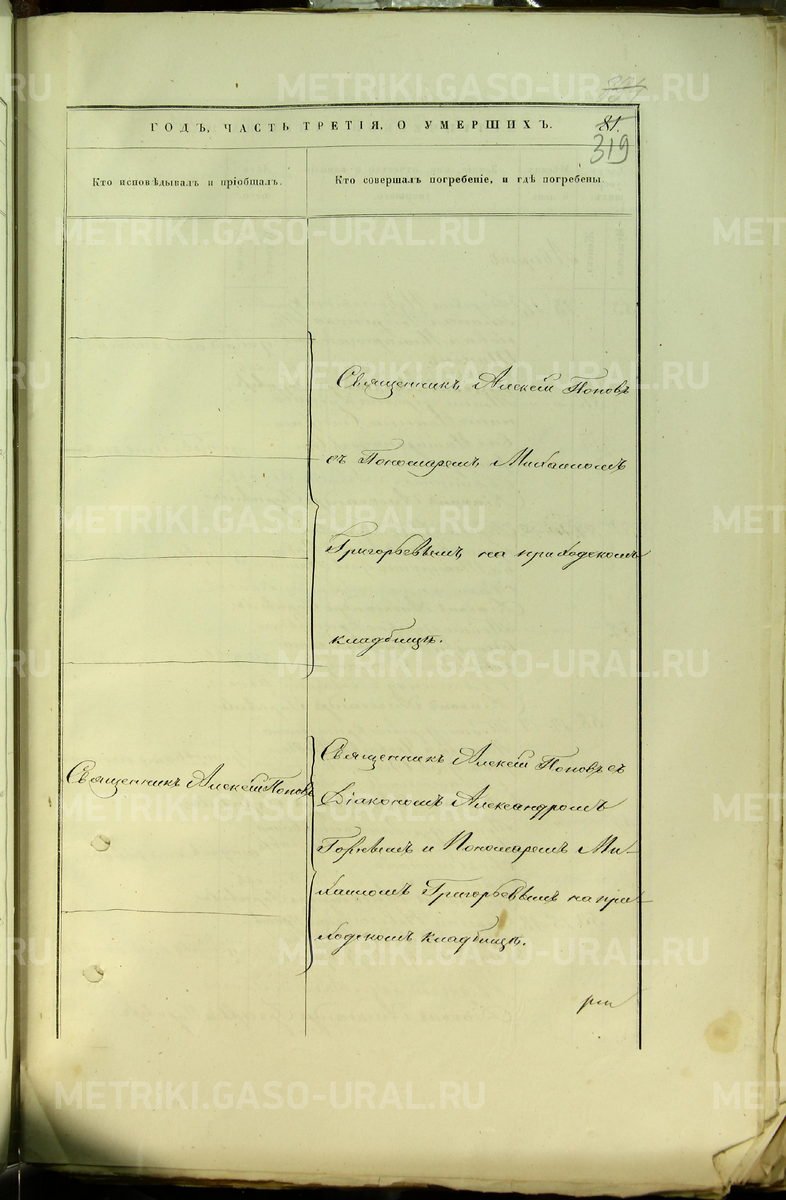 ГОДЪ, ЧАСТЬ ТРЕТІЯ, О УМЕРШИХЪ.
81.
319
Кто исповѣдывалъ и пріобщалъ.
Кто совершалъ погребеніе, и гдѣ погребены.
Священникъ Алексѣй Поповъ
съ Пономаремъ Михаиломъ
Григорьевымъ на приходскомъ
кладбищѣ.
Священникъ Алексѣй Поповъ
Священникъ Алексѣй Поповъ съ
Діакономъ Александромъ
и Пономаремъ Ми-
хаиломъ Григорьевымъ на при-
ходскомъ кладбищѣ.
METRIKI.GASO-URAL.RU